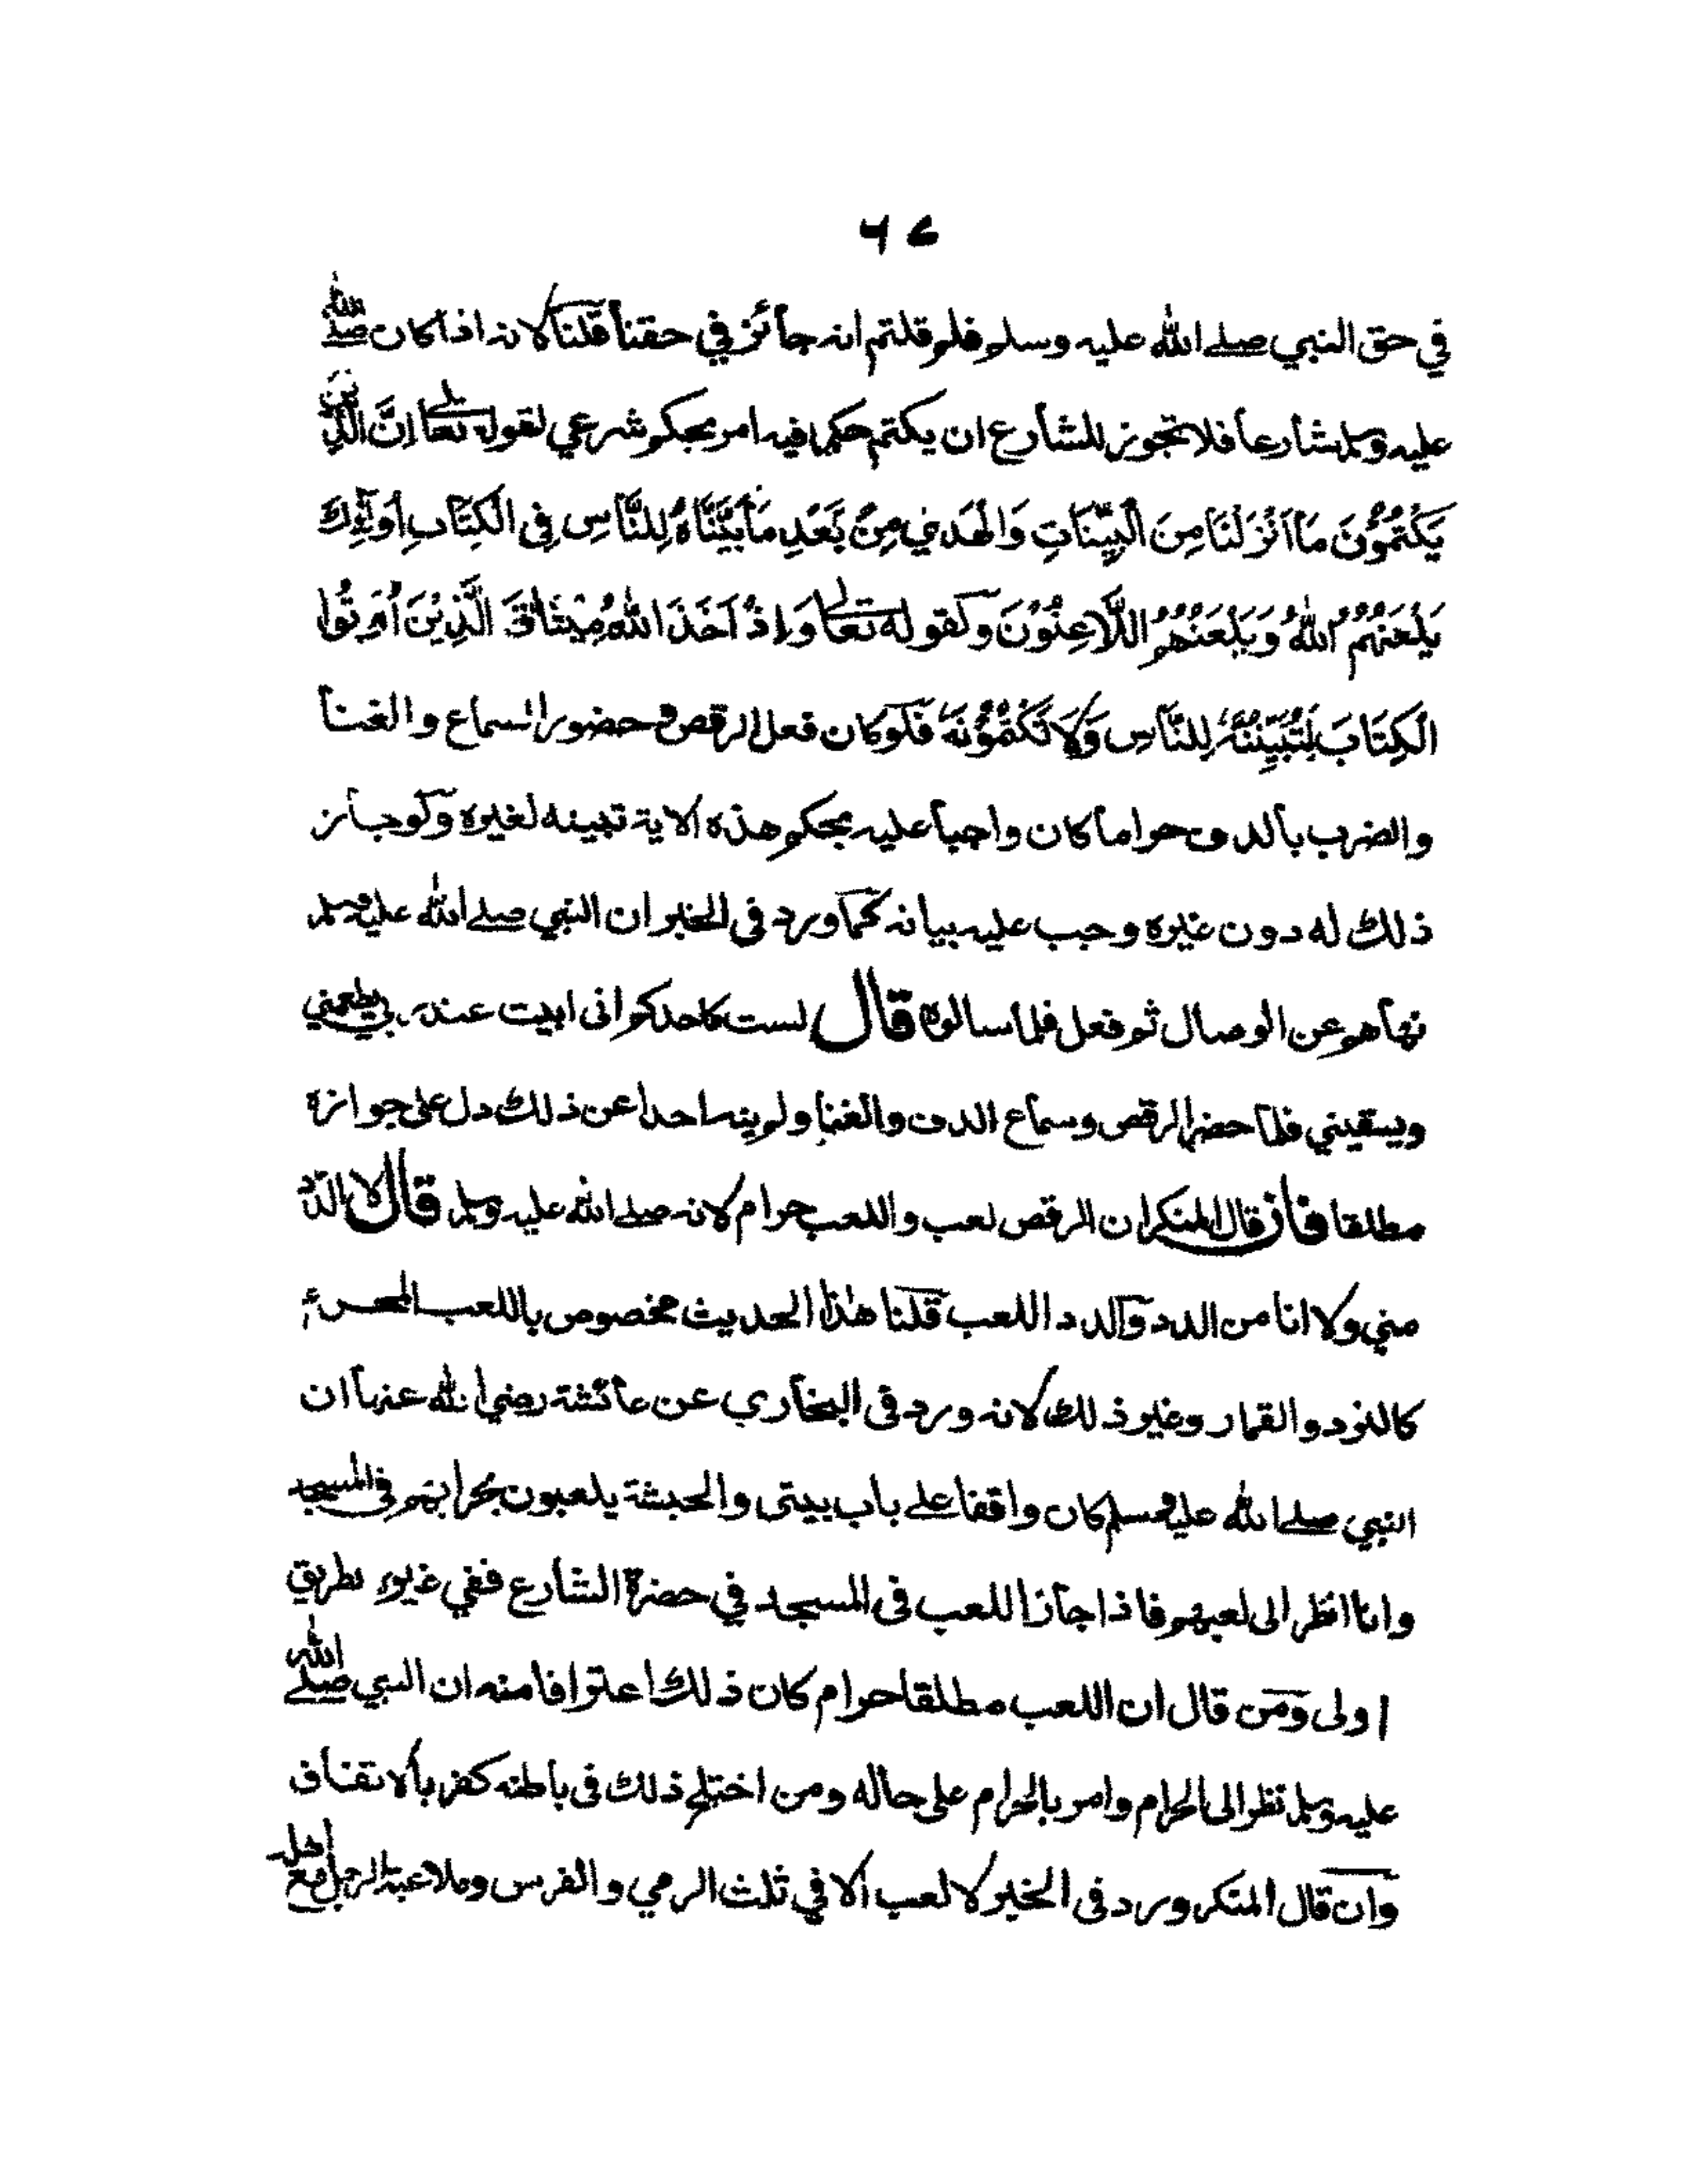 ٦٤
في حق النبي صلے الله عليه وسلم فلم قلتم انه جائز في حقنا قلنا لانه اذا كان صلے الله
عليه وسلم شارعا فلا تجوز للشارع ان يكتم حكما فيه امر بحكم شرعي لقوله تعالے اِنَّ الَّذِيْنَ
يَكْتُمُوْنَ مَا اَنْزَلْنَا مِنَ الْبَيِّنَاتِ وَالْهُدٰى مِنْ بَعْدِ مَا بَيَّنَّاهُ لِلنَّاسِ فِى الْكِتَابِ اُولٰٓئِكَ
يَلْعَنُهُمُ اللهُ وَيَلْعَنُهُمُ اللَّاعِنُوْنَ وكقوله تعالے وَاِذْ اَخَذَ اللهُ مِيْثَاقَ الَّذِيْنَ اُوْتُوا
الْكِتَابَ لَتُبَيِّنُنَّهُ لِلنَّاسِ وَلَا تَكْتُمُوْنَهٗ فلو كان فعل الرقص و حضور السماع والغنا
والضرب بالدف حراما كان واجبا عليه بحكم هذه الاية تبينه لغيره ولو جاز
ذلك له دون غيره وجب عليه بيانه كما ورد فى الخبر ان النبي صلے الله عليه وسلم
نهاهم عن الوصال ثم فعل فلما سالوه قال لست كاحدكم انى ابيت عند ربي يطعمني
ويسقيني فلما حضر الرقص وسماع الدف والغنا ولم ينه احدا عن ذلك دل على جوازه
مطلقا فان قال المنكر ان الرقص لعب واللعب حرام لانه صلے الله عليه وسلم قال لا الدد
مني ولا انا من الدد والدد اللعب قلنا هذا الحديث مخصوص باللعب المحرم
كالنرد والقمار وغير ذلك لانه ورد فى البخاري عن عائشة رضي الله عنها ان
النبي صلے الله عليه وسلم كان واقفا علے باب بيتى والحبشة يلعبون بحرابهم فى المسجد
وانا انظر الى لعبهم فاذا جاز اللعب فى المسجد في حضرة الشارع ففي غيره بطريق
اولى ومن قال ان اللعب مطلقا حرام كان ذلك اعترافا منه ان النبي صلے الله
عليه وسلم نظر الى الحرام وامر بالحرام على حاله ومن اختلج ذلك فى باطنه كفر بالاتفاق
وان قال المنكر ورد فى الخبر لا لعب الا في ثلث الرمي والفرس وملاعبة الرجل مع اهله